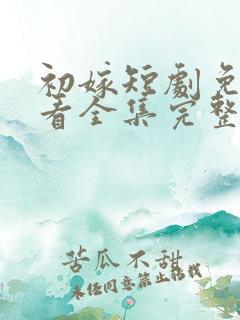 初嫁短劇免
看全集完整
苦瓜不甜
未经同意禁止转载